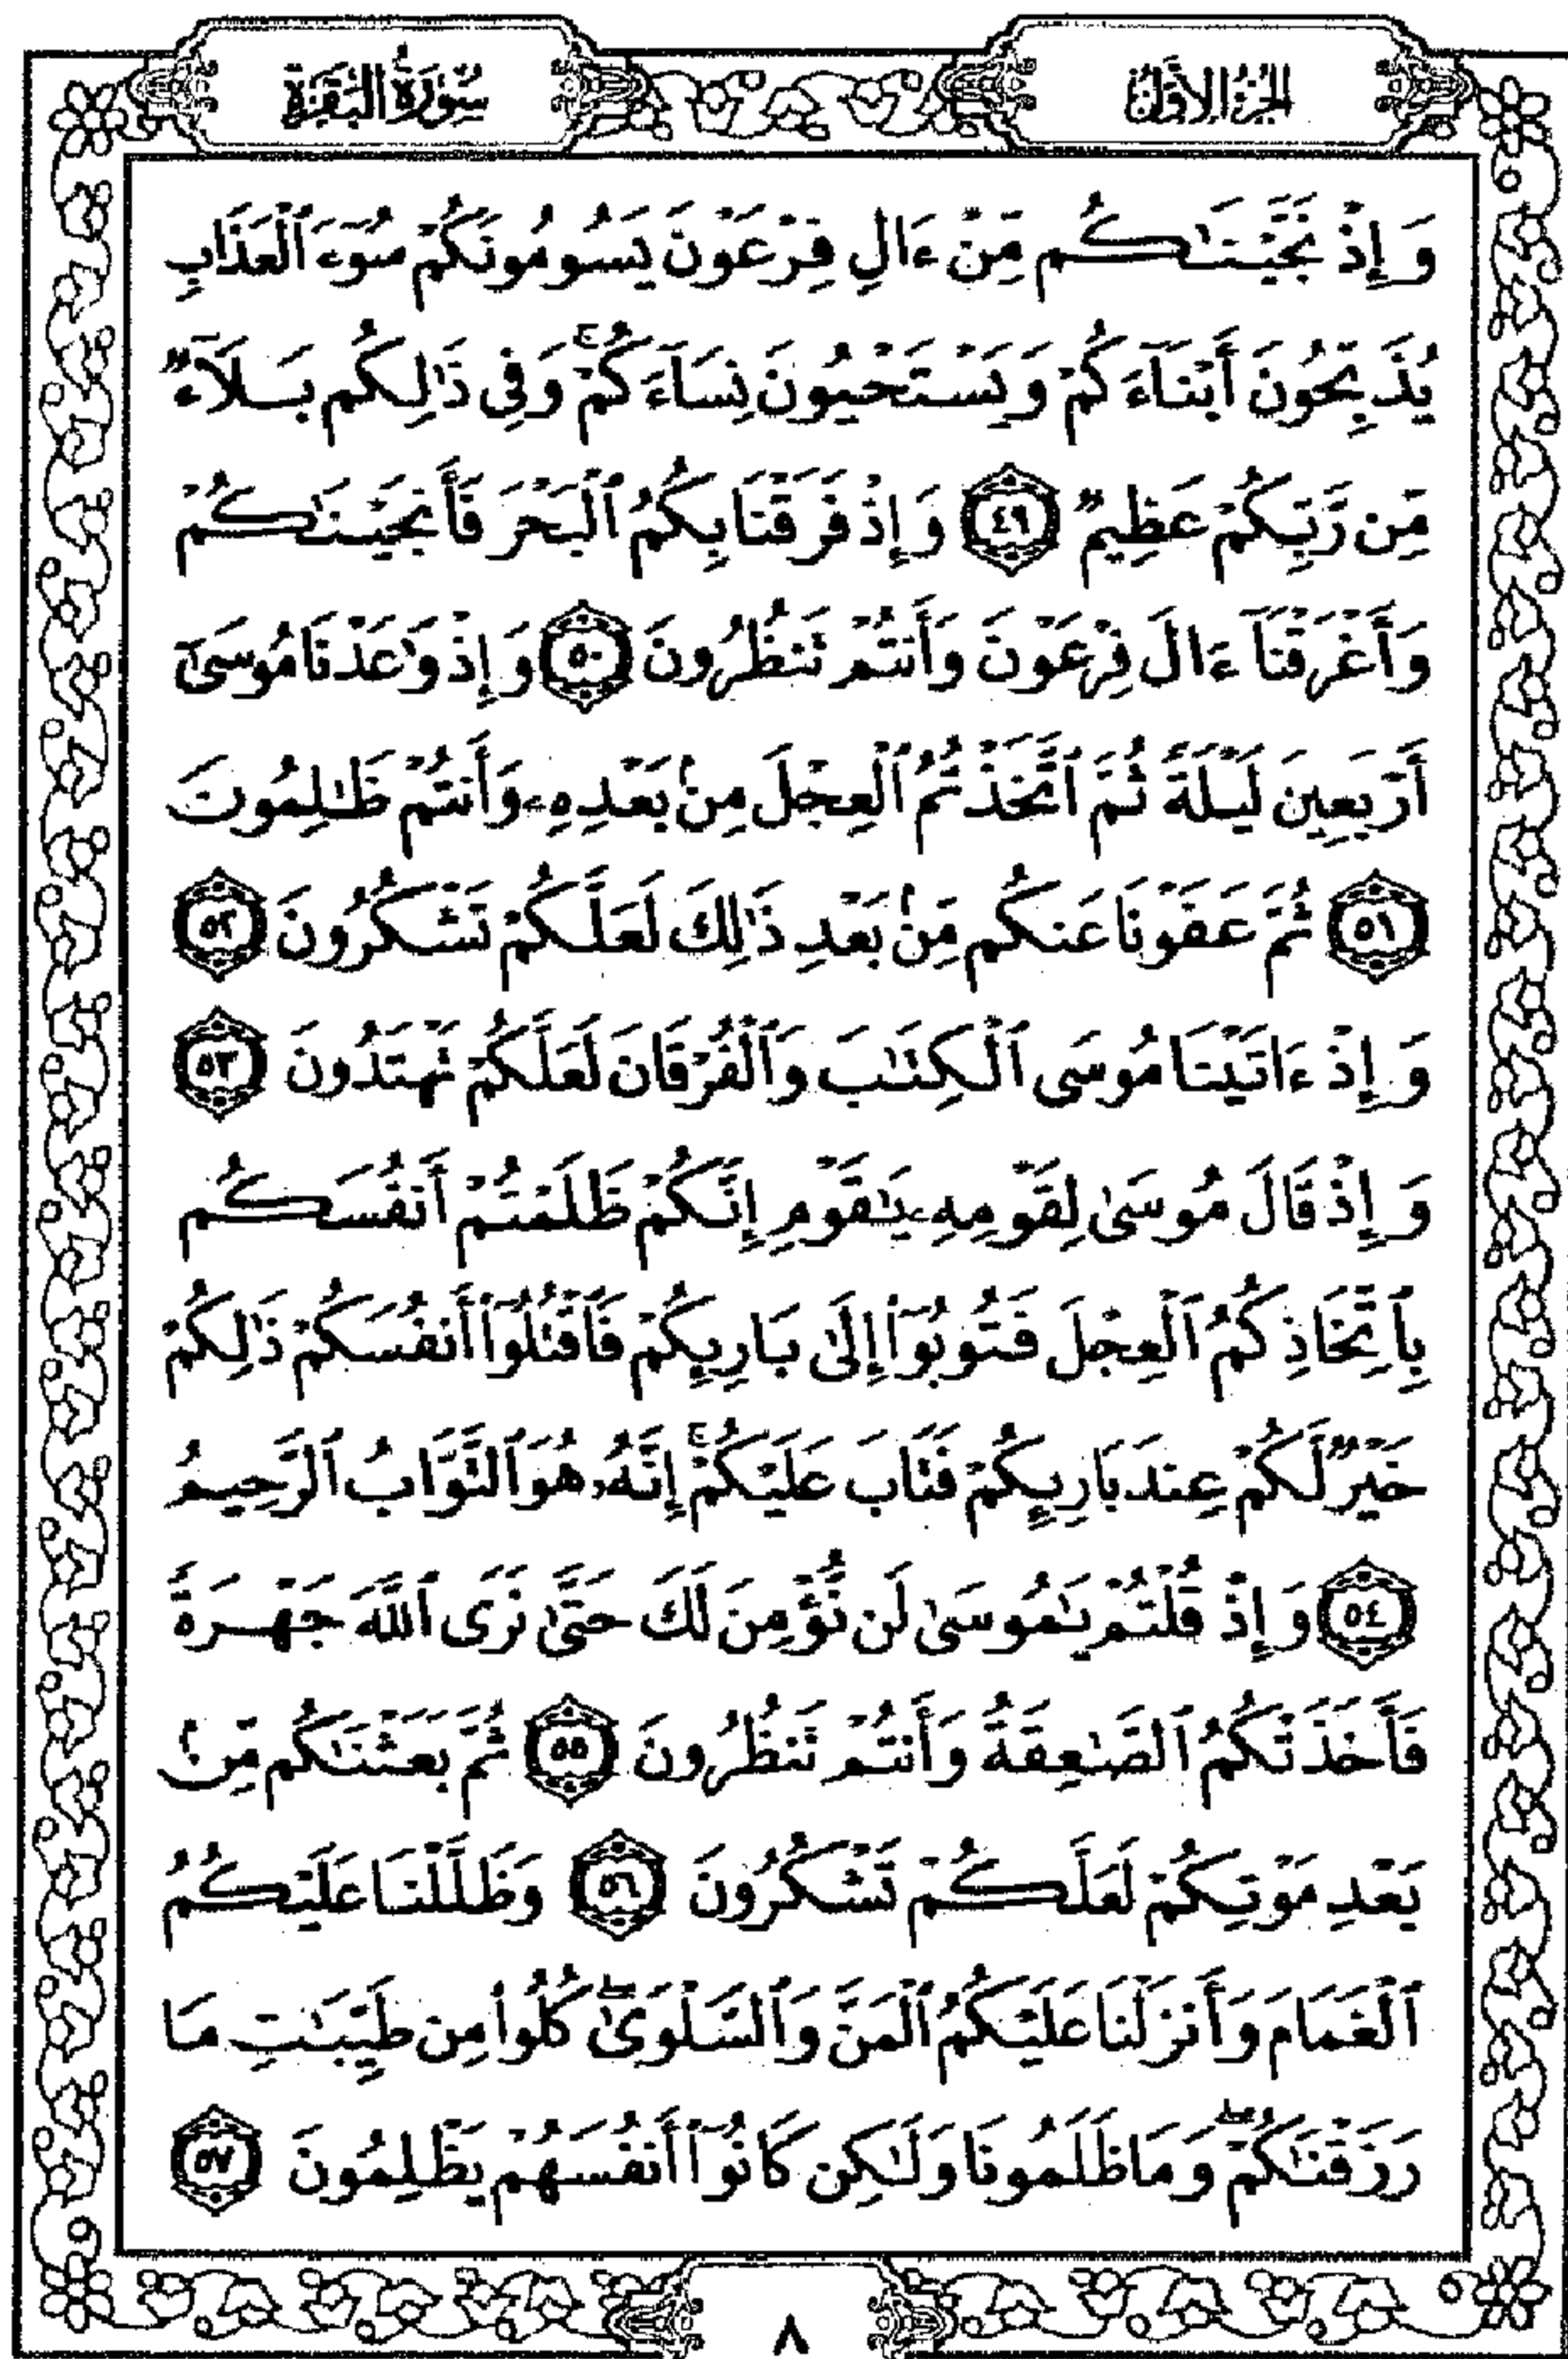 الجزء الأول
سورة البقرة
وَإِذْ نَجَّيْنَٰكُم مِّنْ ءَالِ فِرْعَوْنَ يَسُومُونَكُمْ سُوٓءَ ٱلْعَذَابِ
يُذَبِّحُونَ أَبْنَآءَكُمْ وَيَسْتَحْيُونَ نِسَآءَكُمْ ۚ وَفِى ذَٰلِكُم بَلَآءٌ
مِّن رَّبِّكُمْ عَظِيمٌ ﴿٤٩﴾ وَإِذْ فَرَقْنَا بِكُمُ ٱلْبَحْرَ فَأَنجَيْنَٰكُمْ
وَأَغْرَقْنَآ ءَالَ فِرْعَوْنَ وَأَنتُمْ تَنظُرُونَ ﴿٥٠﴾ وَإِذْ وَٰعَدْنَا مُوسَىٰٓ
أَرْبَعِينَ لَيْلَةً ثُمَّ ٱتَّخَذْتُمُ ٱلْعِجْلَ مِنۢ بَعْدِهِۦ وَأَنتُمْ ظَٰلِمُونَ
﴿٥١﴾ ثُمَّ عَفَوْنَا عَنكُم مِّنۢ بَعْدِ ذَٰلِكَ لَعَلَّكُمْ تَشْكُرُونَ ﴿٥٢﴾
وَإِذْ ءَاتَيْنَا مُوسَى ٱلْكِتَٰبَ وَٱلْفُرْقَانَ لَعَلَّكُمْ تَهْتَدُونَ ﴿٥٣﴾
وَإِذْ قَالَ مُوسَىٰ لِقَوْمِهِۦ يَٰقَوْمِ إِنَّكُمْ ظَلَمْتُمْ أَنفُسَكُم
بِٱتِّخَاذِكُمُ ٱلْعِجْلَ فَتُوبُوٓا۟ إِلَىٰ بَارِئِكُمْ فَٱقْتُلُوٓا۟ أَنفُسَكُمْ ذَٰلِكُمْ
خَيْرٌ لَّكُمْ عِندَ بَارِئِكُمْ فَتَابَ عَلَيْكُمْ ۚ إِنَّهُۥ هُوَ ٱلتَّوَّابُ ٱلرَّحِيمُ
﴿٥٤﴾ وَإِذْ قُلْتُمْ يَٰمُوسَىٰ لَن نُّؤْمِنَ لَكَ حَتَّىٰ نَرَى ٱللَّهَ جَهْرَةً
فَأَخَذَتْكُمُ ٱلصَّٰعِقَةُ وَأَنتُمْ تَنظُرُونَ ﴿٥٥﴾ ثُمَّ بَعَثْنَٰكُم مِّنۢ
بَعْدِ مَوْتِكُمْ لَعَلَّكُمْ تَشْكُرُونَ ﴿٥٦﴾ وَظَلَّلْنَا عَلَيْكُمُ
ٱلْغَمَامَ وَأَنزَلْنَا عَلَيْكُمُ ٱلْمَنَّ وَٱلسَّلْوَىٰ ۖ كُلُوا۟ مِن طَيِّبَٰتِ مَا
رَزَقْنَٰكُمْ ۖ وَمَا ظَلَمُونَا وَلَٰكِن كَانُوٓا۟ أَنفُسَهُمْ يَظْلِمُونَ ﴿٥٧﴾
٨